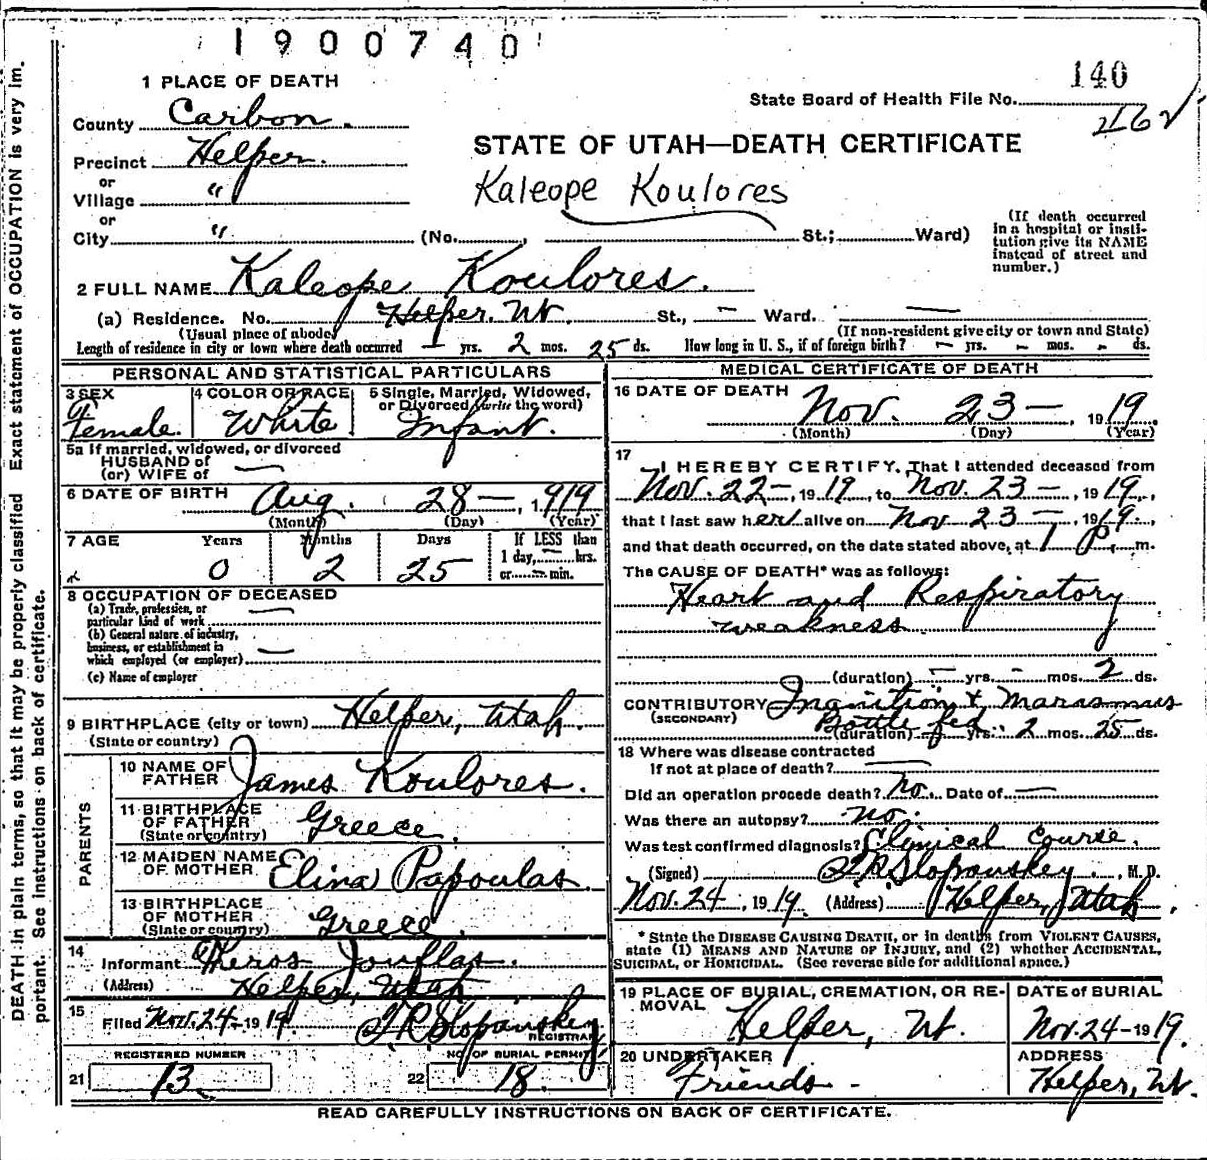 1900740
140
State Board of Health File No.
462
1 PLACE OF DEATH
County Carbon.
Precinct Helper.
or
Village "
or
City "
STATE OF UTAH—DEATH CERTIFICATE
Kaleope Koulores
(No. , St.; Ward)
(If death occurred
in a hospital or insti-
tution give its NAME
instead of street and
number.)
2 FULL NAME Kaleope Koulores.
(a) Residence. No. Helper. Ut. St., — Ward. —
(Usual place of abode)
(If non-resident give city or town and State)
Length of residence in city or town where death occurred — yrs. 2 mos. 25 ds. How long in U. S., if of foreign birth? — yrs. - mos. - ds.
PERSONAL AND STATISTICAL PARTICULARS
3 SEX
Female.
4 COLOR OR RACE
White
5 Single, Married, Widowed,
or Divorced (write the word)
Infant.
5a If married, widowed, or divorced
HUSBAND of
(or) WIFE of —
6 DATE OF BIRTH Aug. 28 —, 1919
(Month) (Day) (Year)
7 AGE Years Months Days If LESS than
1 day, — hrs.
or — min.
0 2 25
8 OCCUPATION OF DECEASED
(a) Trade, profession, or
particular kind of work —
(b) General nature of industry,
business, or establishment in
which employed (or employer) —
(c) Name of employer
9 BIRTHPLACE (city or town) Helper, Utah
(State or country)
PARENTS
10 NAME OF
FATHER James Koulores.
11 BIRTHPLACE
OF FATHER Greece.
(State or country)
12 MAIDEN NAME
OF MOTHER Elina Papoulas
13 BIRTHPLACE
OF MOTHER Greece.
(State or country)
14
Informant Theros Jouflas.
(Address) Helper, Utah
15
Filed Nov. 24-1919. T.R. Slopanskey
REGISTRAR
REGISTERED NUMBER
21 13.
NO. OF BURIAL PERMIT
22 18.
MEDICAL CERTIFICATE OF DEATH
16 DATE OF DEATH Nov. 23 —, 1919
(Month) (Day) (Year)
17
I HEREBY CERTIFY, That I attended deceased from
Nov. 22 -, 1919, to Nov. 23 —, 1919,
that I last saw her alive on Nov 23 —, 1919.,
and that death occurred, on the date stated above, at 1 P. m.
The CAUSE OF DEATH* was as follows:
Heart and Respiratory
weakness
(duration) — yrs. - mos. 2 ds.
CONTRIBUTORY Inanition & Marasmus
(SECONDARY) Bottle fed.
(duration) — yrs. 2 mos. 25 ds.
18 Where was disease contracted
If not at place of death? —
Did an operation procede death? No. Date of —
Was there an autopsy? no.
Was test confirmed diagnosis? Clinical Course.
(Signed) T.R. Slopanskey, M. D.
Nov. 24, 1919. (Address) Helper, Utah.
* State the DISEASE CAUSING DEATH, or in deaths from VIOLENT CAUSES,
state (1) MEANS AND NATURE OF INJURY, and (2) whether ACCIDENTAL,
SUICIDAL, or HOMICIDAL. (See reverse side for additional space.)
19 PLACE OF BURIAL, CREMATION, OR RE-
MOVAL Helper, Ut.
DATE of BURIAL
Nov. 24-1919.
20 UNDERTAKER
Friends -
ADDRESS
Helper, Ut.
READ CAREFULLY INSTRUCTIONS ON BACK OF CERTIFICATE.
DEATH in plain terms, so that it may be properly classified Exact statement of OCCUPATION is very im.
portant. See instructions on back of certificate.